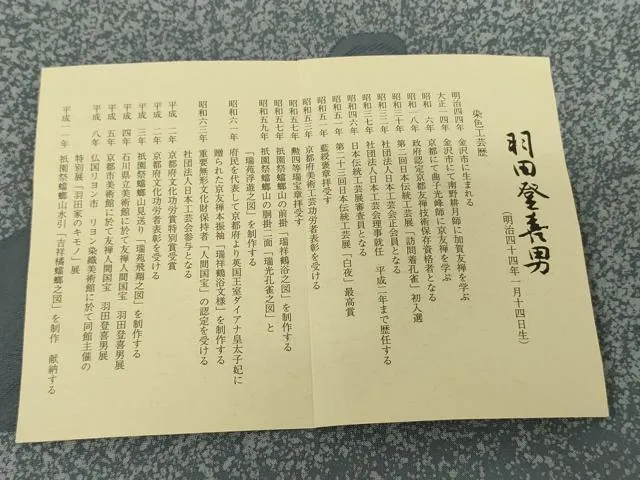 羽田登喜男
(明治四十四年一月十四日生)
染色工芸歴
明治四四年 金沢市に生まれる
大正一四年 金沢市にて南野耕月師に加賀友禅を学ぶ
昭和 六年 京都にて曲子光峰師に京友禅を学ぶ
昭和一八年 政府認定京都友禅技術保存資格者となる
昭和三十年 第二回日本伝統工芸展「訪問着孔雀」初入選
昭和三一年 社団法人日本工芸会正会員となる
昭和三二年 社団法人日本工芸会理事就任 平成二年まで歴任する
昭和四六年 日本伝統工芸展審査員となる
昭和五一年 第二十三回日本伝統工芸展「白夜」最高賞
昭和五一年 藍綬褒章拝受す
昭和五三年 京都府美術工芸功労者表彰を受ける
昭和五七年 勲四等瑞宝章拝受す
昭和五七年 祇園祭蟷螂山の前掛「瑞祥鶴浴之図」を制作する
昭和五九年 祇園祭蟷螂山の胴掛二面「瑞光孔雀之図」と
「瑞苑浮遊之図」を制作する
昭和六一年 府民を代表して京都府より英国王室ダイアナ皇太子妃に
贈られた京友禅本振袖「瑞祥鶴浴文様」を制作する
昭和六三年 重要無形文化財保持者「人間国宝」の認定を受ける
社団法人日本工芸会参与となる
平成 二年 京都府文化功労賞特別賞受賞
平成 二年 京都市文化功労者表彰を受ける
平成 三年 祇園祭蟷螂山見送り「瑞苑飛翔之図」を制作する
平成 四年 石川県立美術館に於て友禅人間国宝 羽田登喜男展
平成 五年 京都市美術館に於て友禅人間国宝 羽田登喜男展
平成 八年 仏国リヨン市 リヨン染織美術館に於て同館主催の
特別展「羽田家のキモノ」展
平成一一年 祇園祭蟷螂山水引「吉祥橘蟷螂之図」を制作 献納する